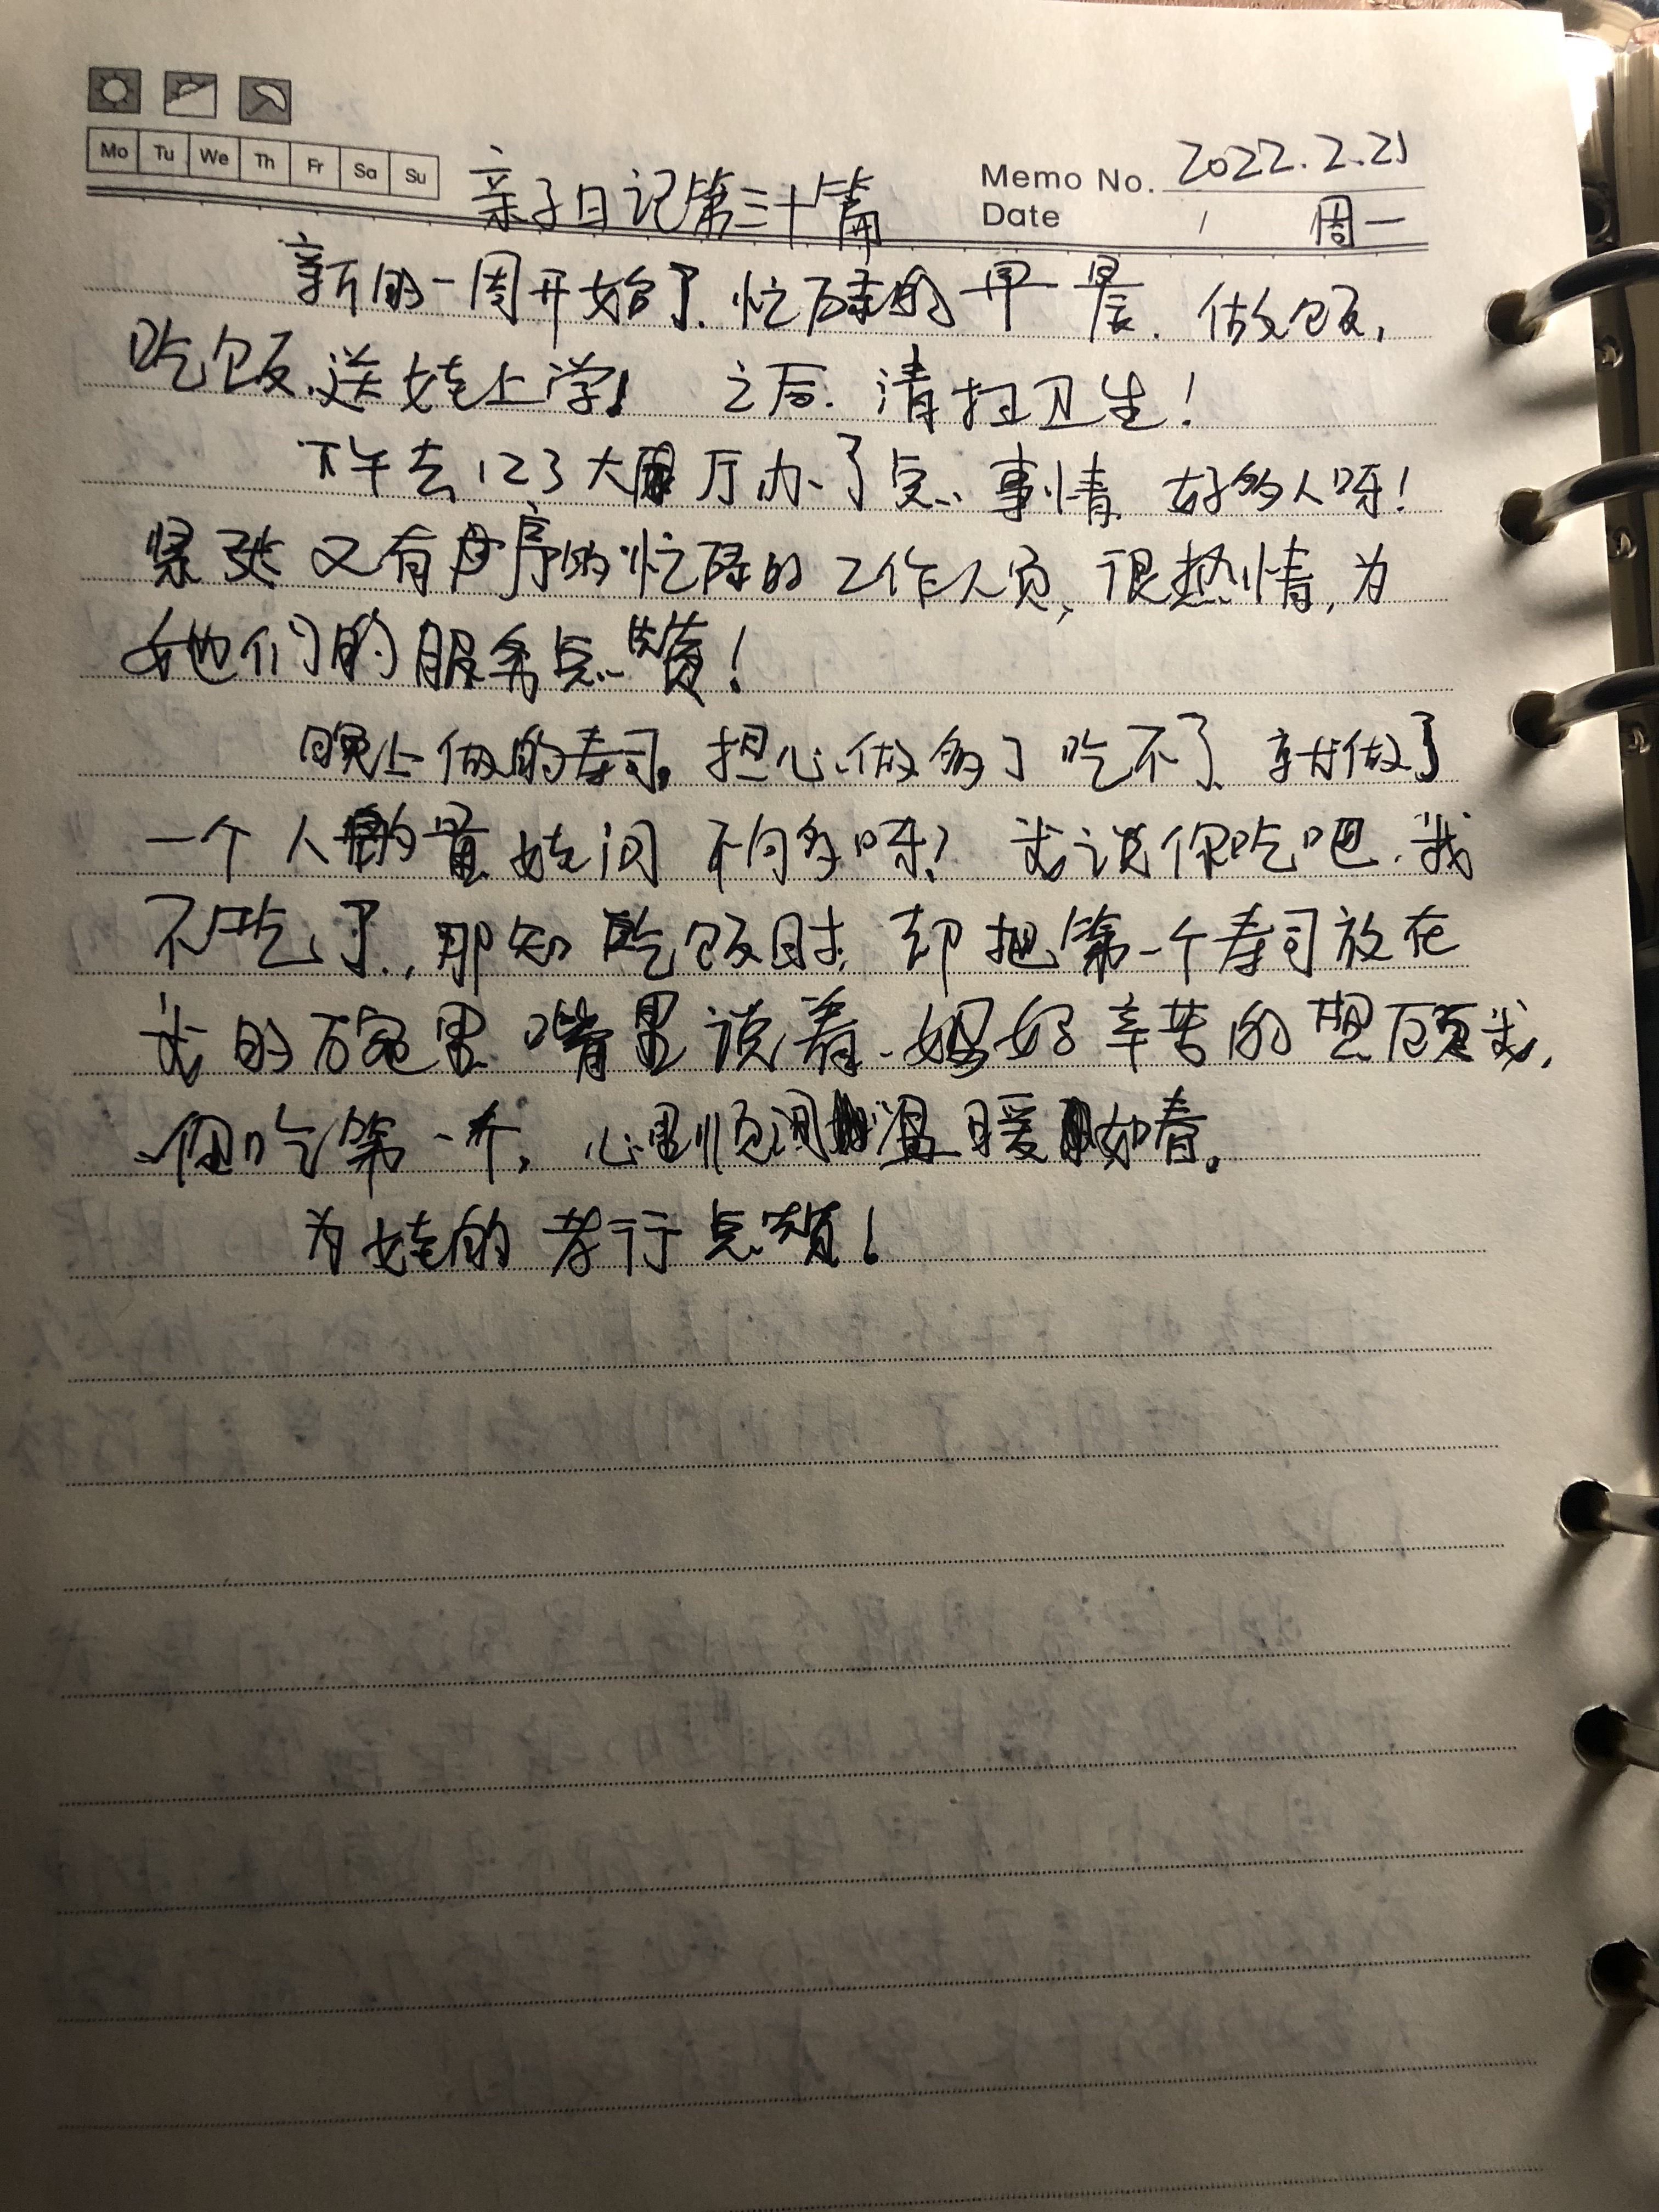 Mo Tu We Th Fr Sa Su
亲子日记第三十篇
Memo No. 2022.2.21
Date / 周一
新的一周开始了.忙碌的早晨.做饭,
吃饭.送娃上学! 之后.清扫卫生!
下午去123大厅办了点事情.好多人呀!
紧张又有序的忙碌的工作人员,很热情,为
她们的服务点赞!
晚上做的寿司。担心做多了吃不了.就做了
一个人的量.娃问 不句多呀?我说你吃吧.我
不吃了.,那知吃饭时,却把第一个寿司放在
我的碗里.嘴里说着.妈妈辛苦的照顾我,
你吃第一个,心里顺间温暖如春。
为娃的孝行点赞!